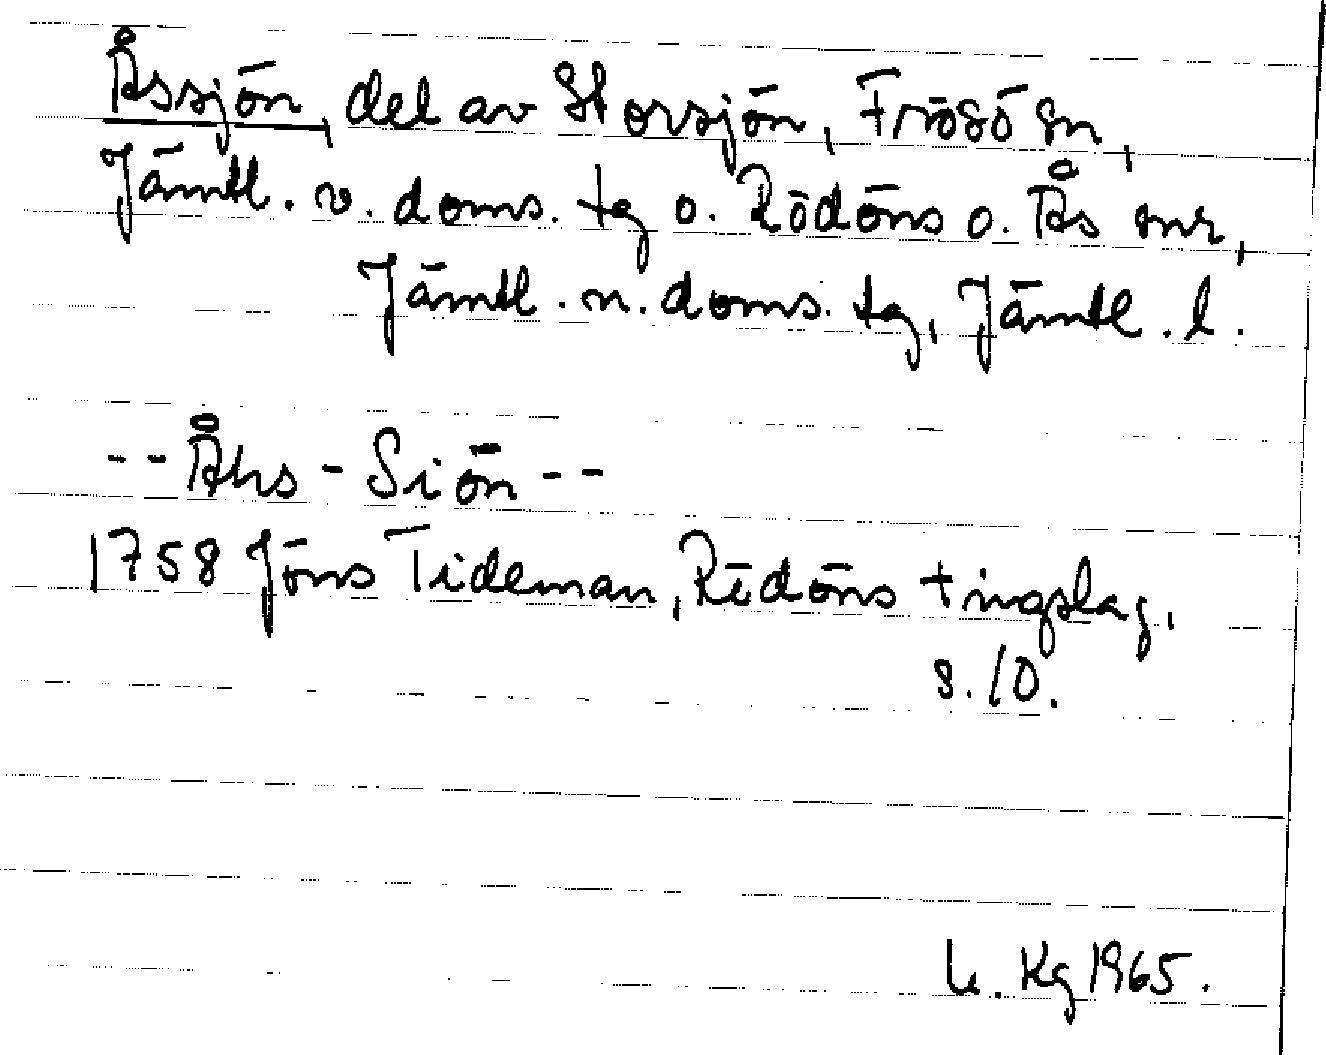 Åssjön, del av Storsjön, Frösö sn,
Jämtl. v. doms. tg o. Rödöns o. Ås snr,
Jämtl. n. doms. tg, Jämtl. l.
-- Åhs - Siön --
1758 Jöns Tideman, Rödöns tingslag,
s. 10.
Kg 1965.